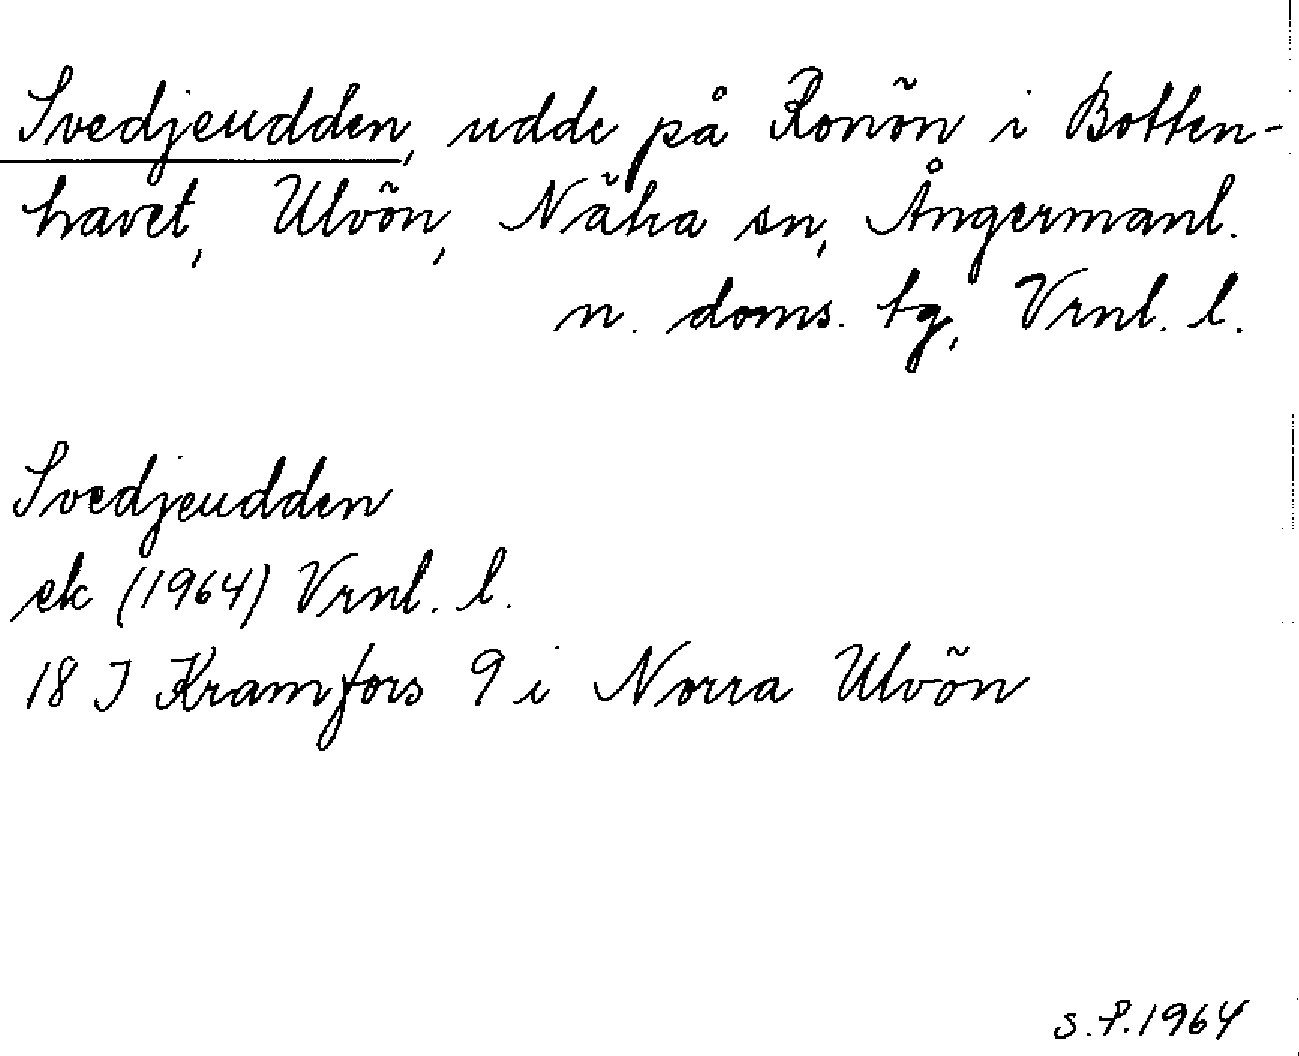 Svedjeudden, udde på Ronön i Botten-
havet, Ulvön, Nätra sn, Ångermanl.
n. doms. tg, Vrnl. l.
Svedjeudden
ek (1964) Vrnl. l.
18 I Kramfors 9 i Norra Ulvön
S.P.1964